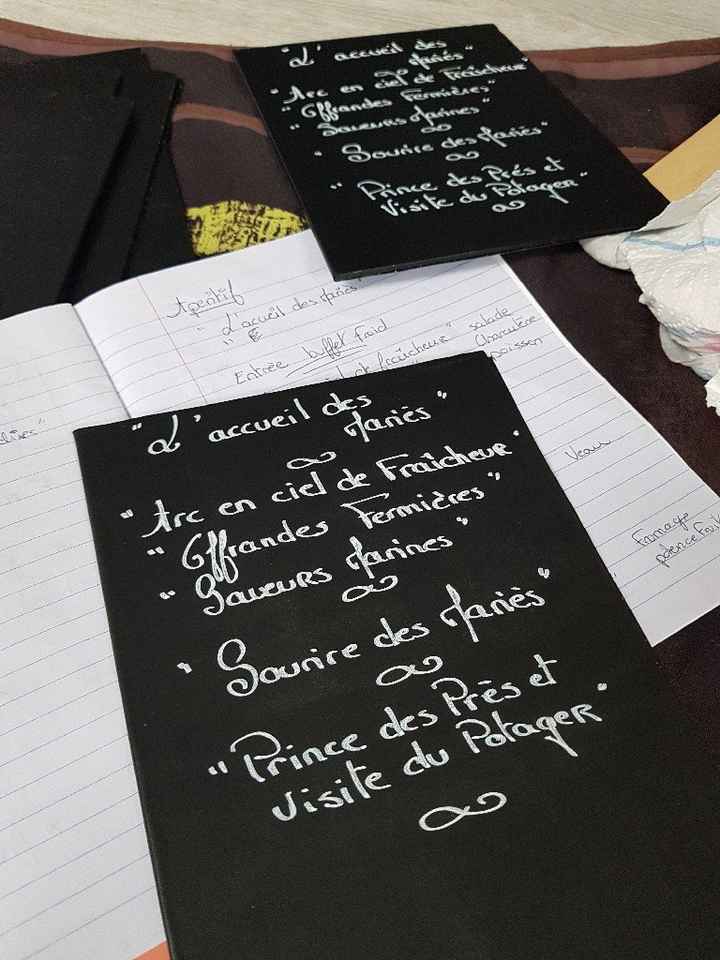 "L'accueil des
Mariés"
"Arc en ciel de Fraîcheur"
"Offrandes Fermières"
"Saveurs Marines"
"Sourire des Mariés"
"Prince des Prés et
Visite du Potager"
Apéritif
"L'accueil des Mariés"
Entrée buffet Froid
de fraîcheur" salade
Charcuterie
poisson
Veau
"L'accueil des
Mariés"
"Arc en ciel de Fraîcheur"
"Offrandes Fermières"
"Saveurs Marines"
"Sourire des Mariés"
"Prince des Près et
visite du Potager"